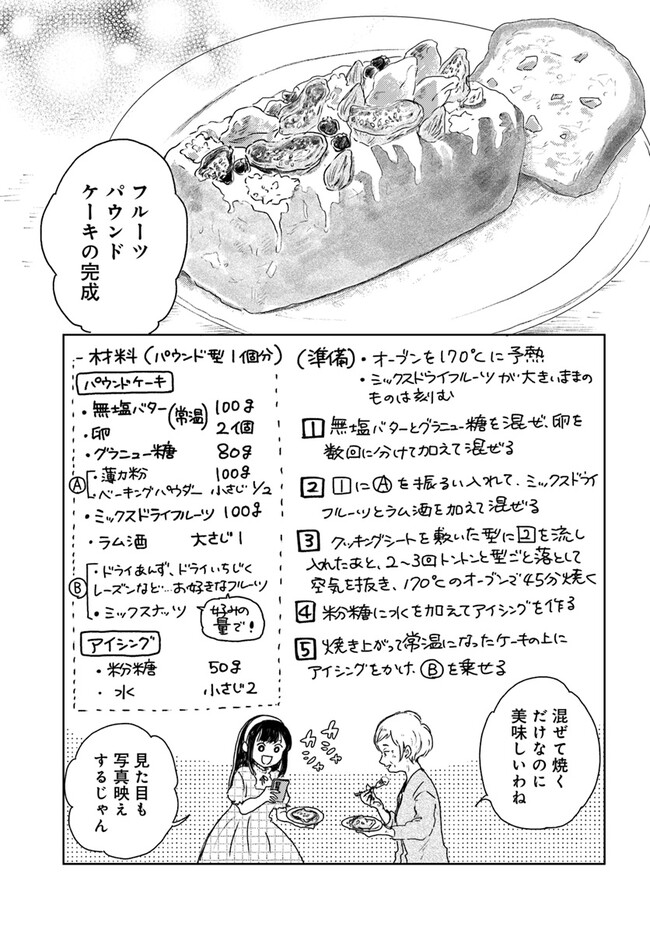 フルーツ
パウンド
ケーキの完成
- 材料(パウンド型1個分)
パウンドケーキ
・無塩バター(常温) 100g
・卵 2個
・グラニュー糖 80g
Ⓐ・薄力粉 100g
ベーキングパウダー 小さじ1/2
・ミックスドライフルーツ 100g
・ラム酒 大さじ1
Ⓑ・ドライあんず、ドライいちじく
レーズンなど…お好きなフルーツ
・ミックスナッツ
好みの
量で!
アイシング
・粉糖 50g
・水 小さじ2
(準備)・オーブンを170℃に予熱
・ミックスドライフルーツが大きいままの
ものは刻む
1 無塩バターとグラニュー糖を混ぜ、卵を
数回に分けて加えて混ぜる
2 1にⒶを振るい入れて、ミックスドライ
フルーツとラム酒を加えて混ぜる
3 クッキングシートを敷いた型に2を流し
入れたあと、2〜3回トントンと型ごと落として
空気を抜き、170℃のオーブンで45分焼く
4 粉糖に水を加えてアイシングを作る
5 焼き上がって常温になったケーキの上に
アイシングをかけ、Ⓑを乗せる
混ぜて焼く
だけなのに
美味しいわね
カシャ
カシャ
見た目も
写真映え
するじゃん